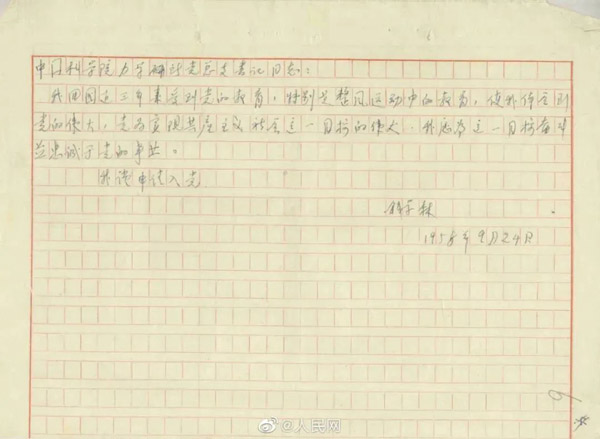 中国科学院力学研究所党总支书记同志：
我回国近三年来受到党的教育，特别是整风运动中的教育，使我体会到
党的伟大，党为实现共产主义社会这一目标的伟大。我愿为这一目标奋斗
并忠诚于党的事业。
我谨申请入党
钱学森
1958年9月24日
@人民网